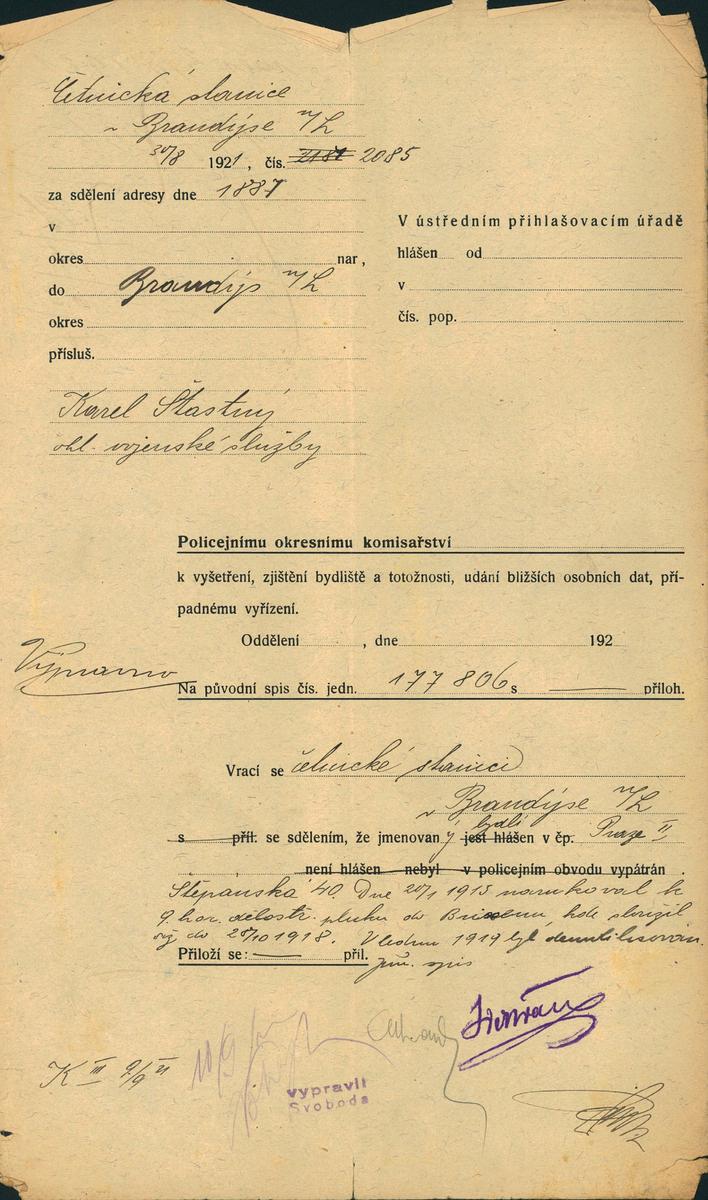 Četnická stanice
v Brandýse n/L
30/8 1921, čís. 2181 2085
za sdělení adresy dne 1887
v
okres nar,
do Brandýs n/L
okres
přísluš.
Karel Štastný
ohl. vojenské služby
V ústředním přihlašovacím úřadě
hlášen od
v
čís. pop.
Policejnímu okresnímu komisařství
k vyšetření, zjištění bydliště a totožnosti, udání bližších osobních dat, pří-
padnému vyřízení.
Oddělení , dne 192
Výpravno
Na původní spis čís. jedn. 177 806 s příloh.
Vrací se četnické stanici
v Brandýse n/L
bydlí
s příl. se sdělením, že jmenovaný jest hlášen v čp. Praze II,
není hlášen nebyl v policejním obvodu vypátrán
Štěpánská 40. Dne 1915 narukoval k
9. hor. dělostř. pluku do Brixenu, kde sloužil
až do 28/10 1918. V lednu 1919 byl demobilisován.
Přiloží se: příl.
spis
10/9
K III 9/9 21
vypravil
Svoboda